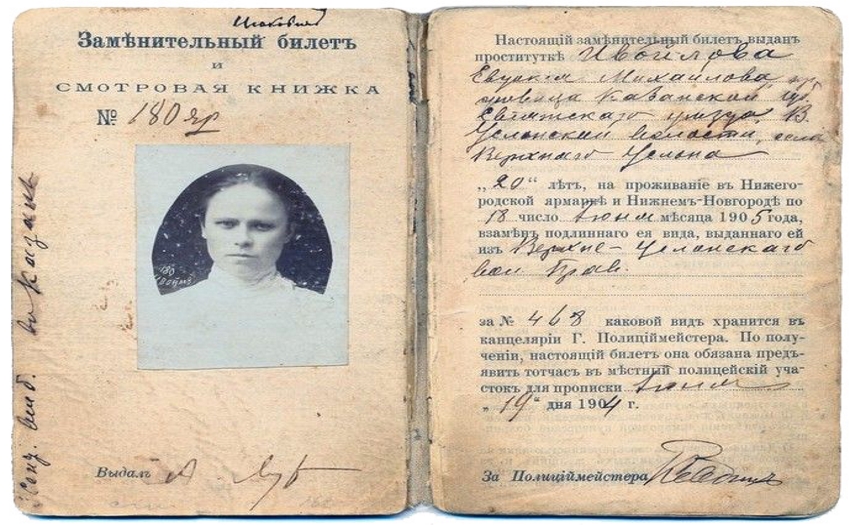 Замѣнительный билетъ
и
СМОТРОВАЯ КНИЖКА
№ 180 яр
180
Выдалъ
въ Казань
Настоящій замѣнительный билетъ выданъ
проституткѣ Ивойлова
Евдокія Михайлова,
Казанской губ.
уѣзда, В.
Услонской волости, села
Верхняго Услона
„20“ лѣтъ, на проживаніе въ Нижего-
родской ярмаркѣ и Нижнемъ-Новгородѣ по
18 число Іюня мѣсяца 1905 года,
взамѣнъ подлиннаго ея вида, выданнаго ей
изъ Верхне-Услонскаго
вол Прав.
за № 468 каковой видъ хранится въ
канцеляріи Г. Полиціймейстера. По полу-
ченіи, настоящій билетъ она обязана предъ-
явить тотчасъ въ мѣстный полицейскій уча-
стокъ для прописки Іюня
„19“ дня 1904 г.
За Полиціймейстера